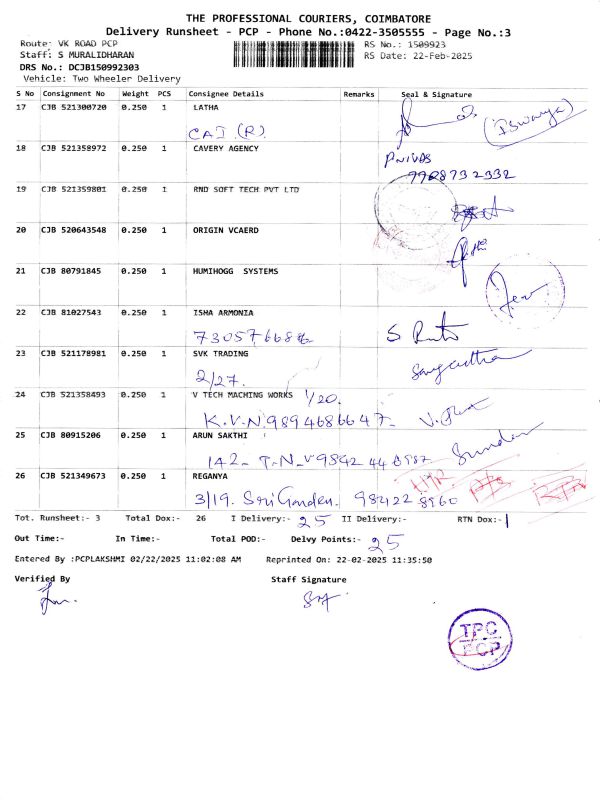 THE PROFESSIONAL COURIERS, COIMBATORE
Delivery Runsheet - PCP - Phone No.:0422-3505555 - Page No.:3
Route: VK ROAD PCP RS No.: 1509923
Staff: S MURALIDHARAN RS Date: 22-Feb-2025
DRS No.: DCJB150992303
Vehicle: Two Wheeler Delivery
S No Consignment No Weight PCS Consignee Details Remarks Seal & Signature
17 CJB 521300720 0.250 1 LATHA
(Iswarya)
18 CJB 521358972 0.250 1 CAVERY AGENCY
19 CJB 521359801 0.250 1 RND SOFT TECH PVT LTD
20 CJB 520643548 0.250 1 ORIGIN VCAERD
21 CJB 80791845 0.250 1 HUMIHOGG SYSTEMS
22 CJB 81027543 0.250 1 ISHA ARMONIA
23 CJB 521178981 0.250 1 SVK TRADING
2/27.
24 CJB 521358493 0.250 1 V TECH MACHING WORKS 1/20.
K.V.N. 9894686647
25 CJB 80915206 0.250 1 ARUN SAKTHI
142- T.N.V Sundar
26 CJB 521349673 0.250 1 REGANYA
3/19. Sri Garden. 98422 8960
Tot. Runsheet:- 3 Total Dox:- 26 I Delivery:- 25 II Delivery:- RTN Dox:- 1
Out Time:- In Time:- Total POD:- Delvy Points:- 25
Entered By :PCPLAKSHMI 02/22/2025 11:02:08 AM Reprinted On: 22-02-2025 11:35:50
Verified By Staff Signature
TPC
PCP